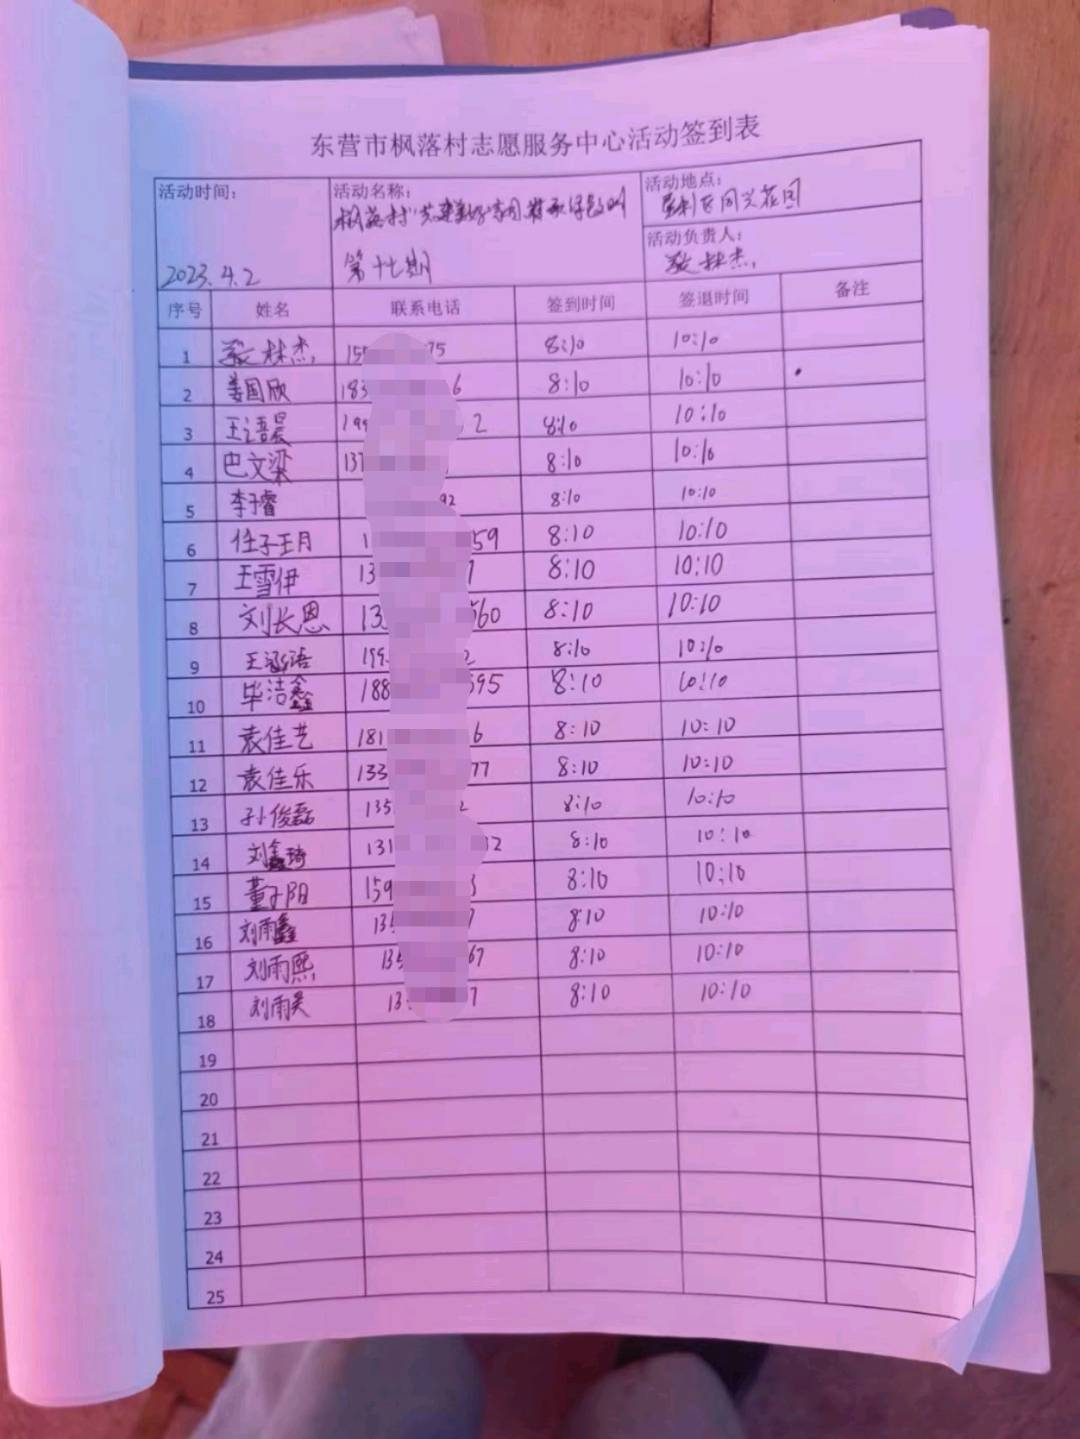 东营市枫落村志愿服务中心活动签到表
活动时间: 活动名称: 活动地点:
枫落村"共建美好家园
同兴花园
活动负责人:
林杰
2023.4.2 第十七期
序号 姓名 联系电话 签到时间 签退时间 备注
1 林杰 15 75 8:10 10:10
2 姜国欣 183 6 8:10 10:10
3 王语晨 199 2 8:10 10:10
4 巴文梁 137 8:10 10:10
5 李子睿 92 8:10 10:10
6 任子玥 1 59 8:10 10:10
7 王雪伊 13 7 8:10 10:10
8 刘长恩 13 560 8:10 10:10
9 王涵语 199 2 8:10 10:10
10 毕洁鑫 188 595 8:10 10:10
11 袁佳艺 181 6 8:10 10:10
12 袁佳乐 133 77 8:10 10:10
13 孙俊磊 135 2 8:10 10:10
14 刘鑫琦 131 32 8:10 10:10
15 董子阳 159 3 8:10 10:10
16 刘雨鑫 135 7 8:10 10:10
17 刘雨熙 135 67 8:10 10:10
18 刘雨昊 13 7 8:10 10:10
19
20
21
22
23
24
25